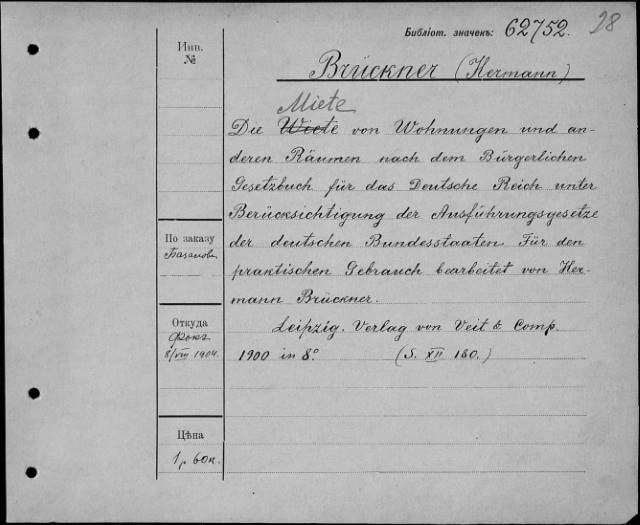 Библіот. значекъ: 62752. 28
Инв.
№
Brückner (Hermann)
Miete
Die Wiete von Wohnungen und an-
deren Räumen nach dem Bürgerlichen
Gesetzbuch für das Deutsche Reich unter
Berücksichtigung der Ausführungsgesetze
der deutschen Bundesstaaten. Für den
praktischen Gebrauch bearbeitet von Her-
mann Brückner.
Leipzig. Verlag von Veit & Comp.
1900 in 8° (S. XII 180.)
По заказу
Базанова
Откуда
Фокъ
8/VIII 1904.
Цѣна
1 р. 60 к.